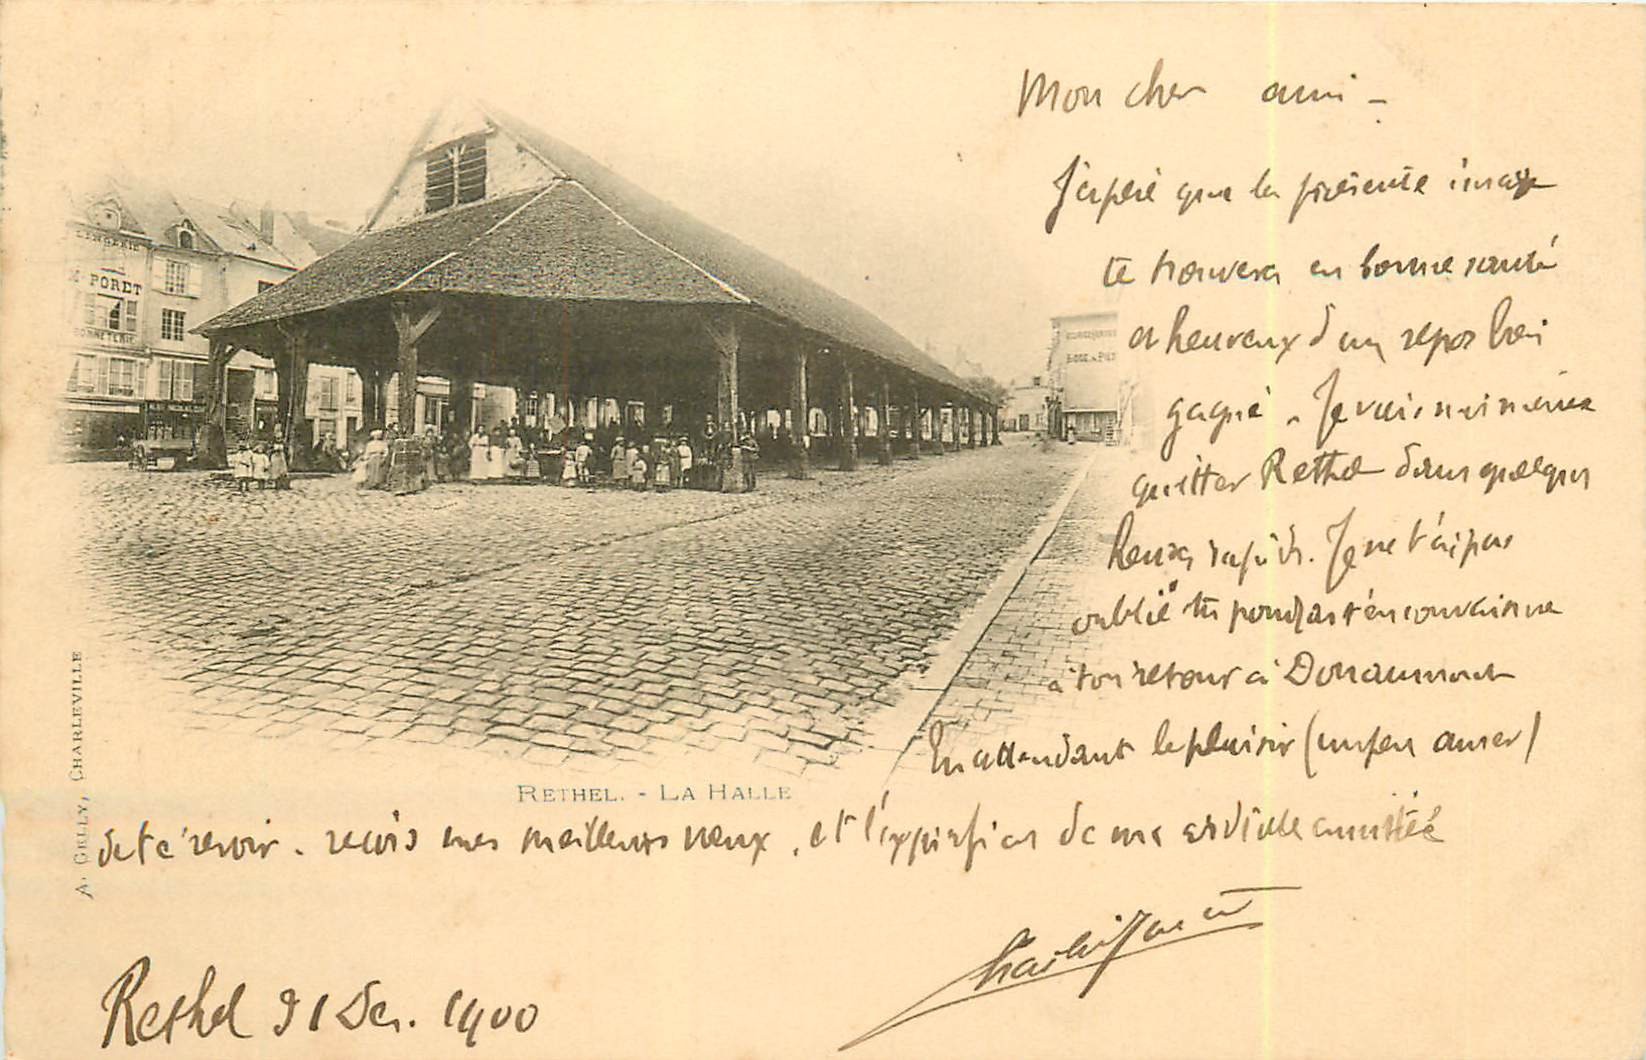 Mon cher ami -
J'espère que la présente image
te trouvera en bonne santé
et heureux d'un repos bien
gagné. Je vais moi-même
quitter Rethel dans quelques
heures rapides. Je ne t'ai pas
oublié tu pourras t'en convaincre
à ton retour à Douaumont
En attendant le plaisir (un peu amer)
de te revoir. reçois mes meilleurs vœux, et l'expression de ma cordiale amitié
Rethel 31 Dec. 1900
RETHEL. - LA HALLE
A. GELLY, CHARLEVILLE
M. PORET
BONNETERIE